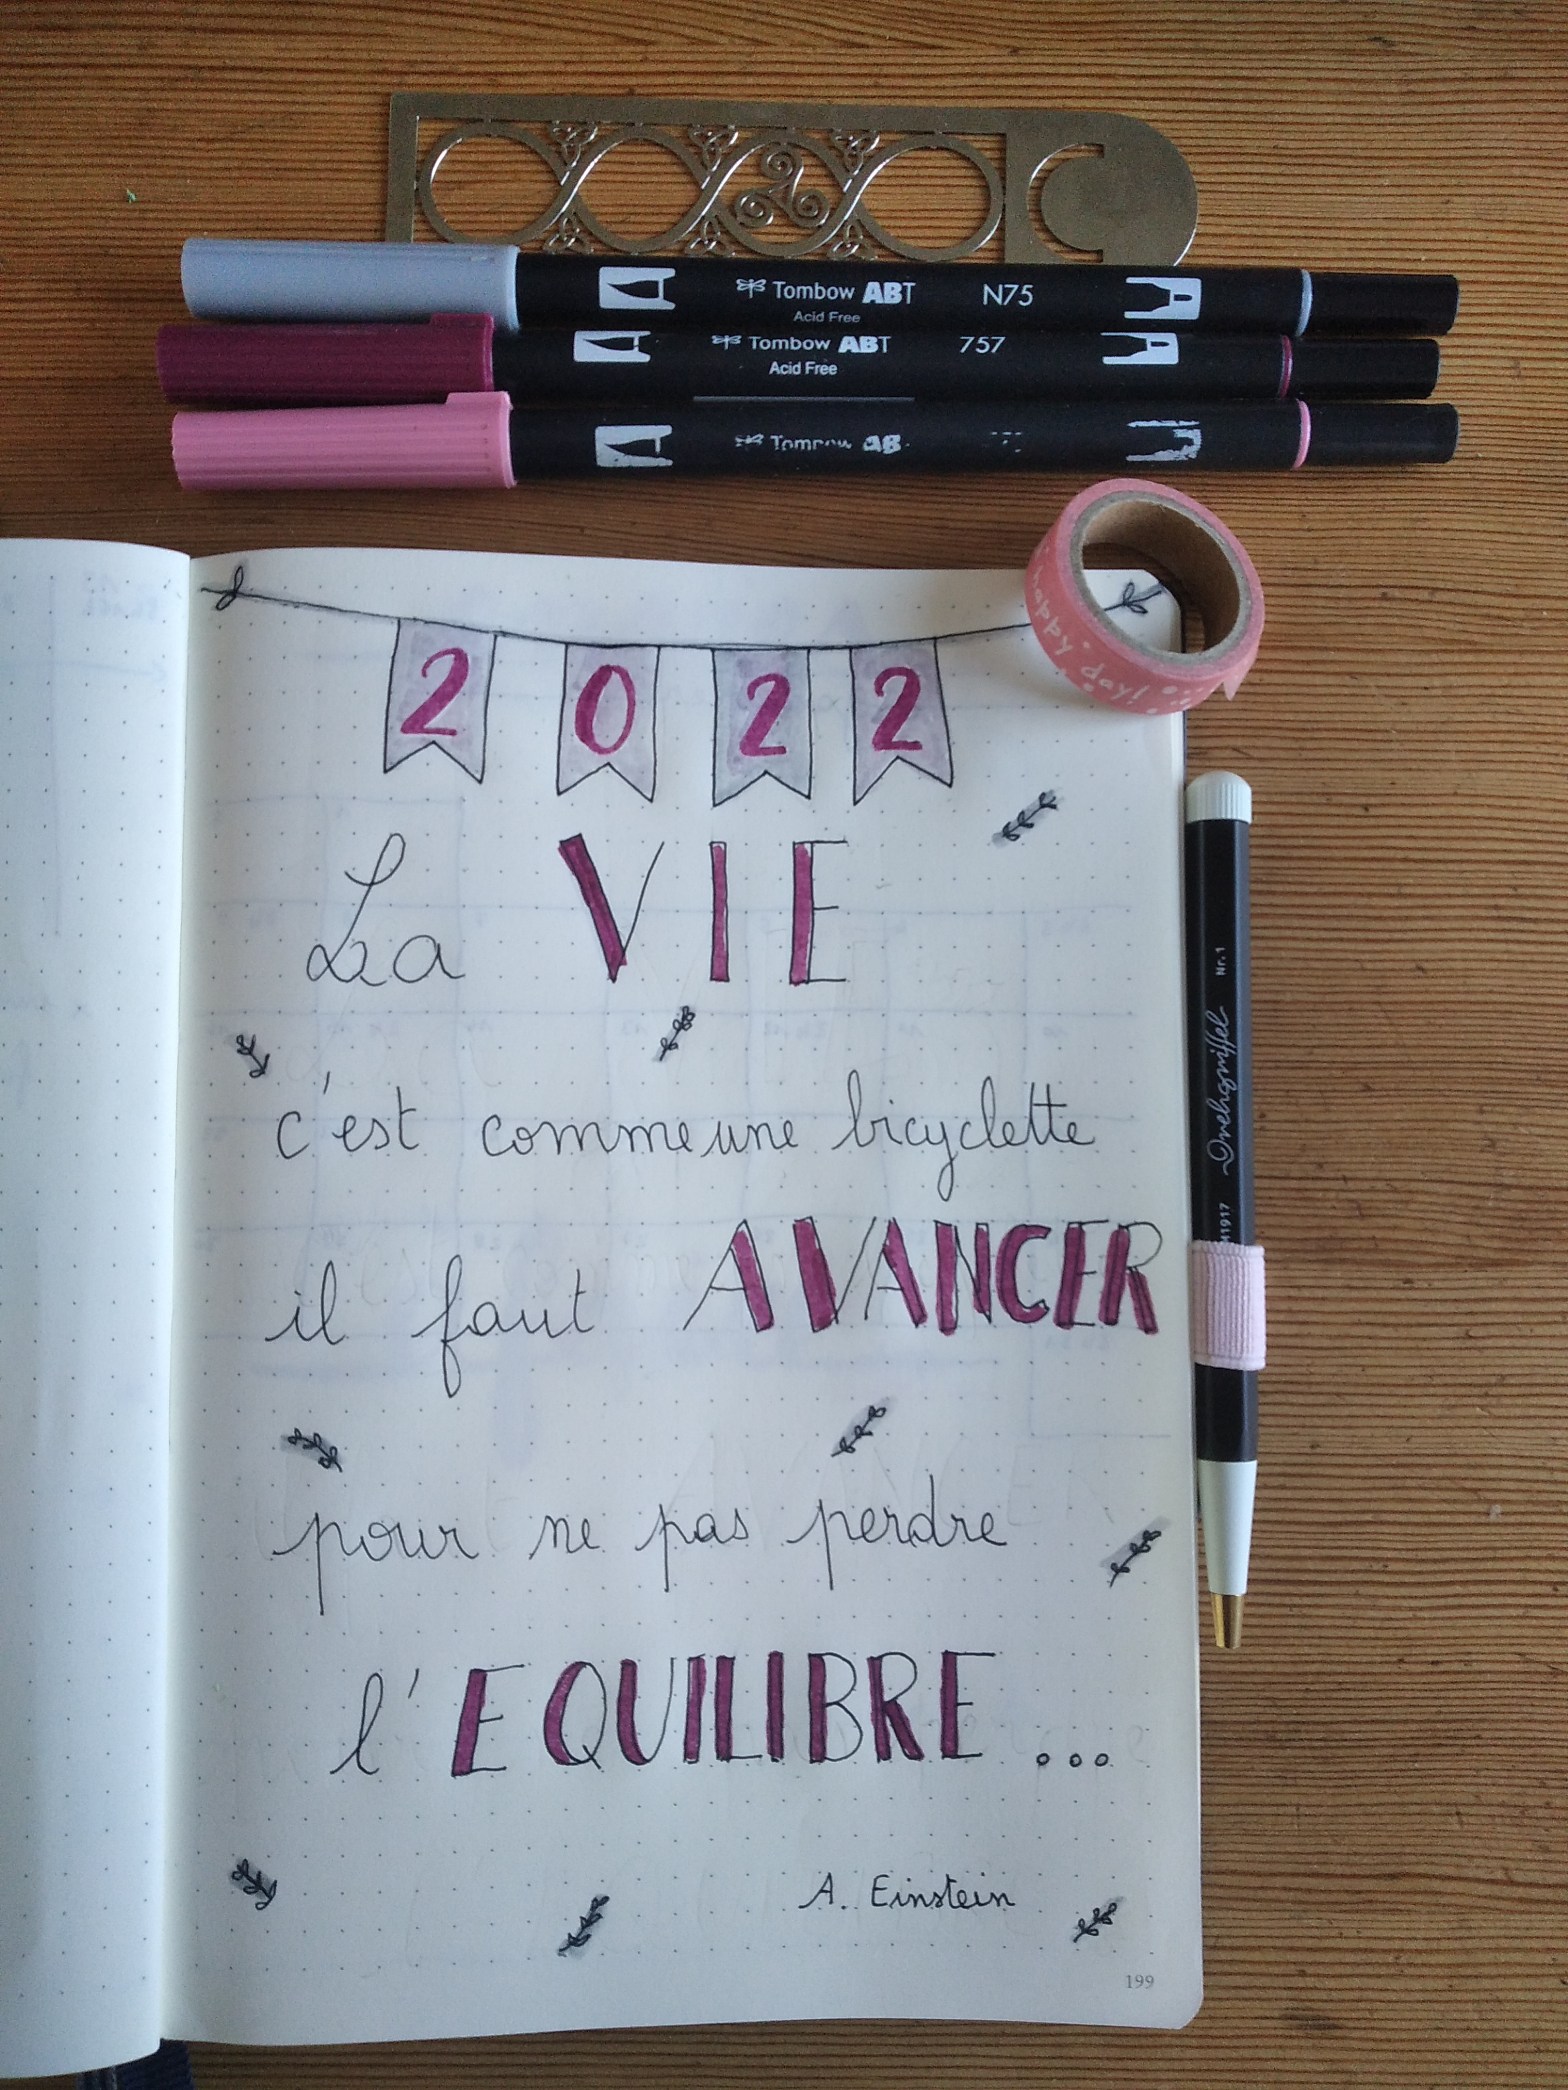 Tombow ABT N75
Acid Free
Tombow ABT 757
Acid Free
Tombow AB
happy day!
2022
La VIE
c'est comme une bicyclette
il faut AVANCER
pour ne pas perdre
l'EQUILIBRE...
A. Einstein
199
Drehgriffel Nr.1